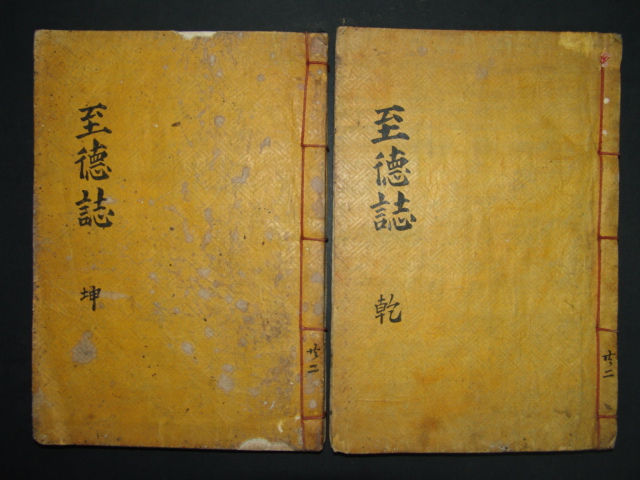 至德誌
乾
共二
至德誌
坤
共二